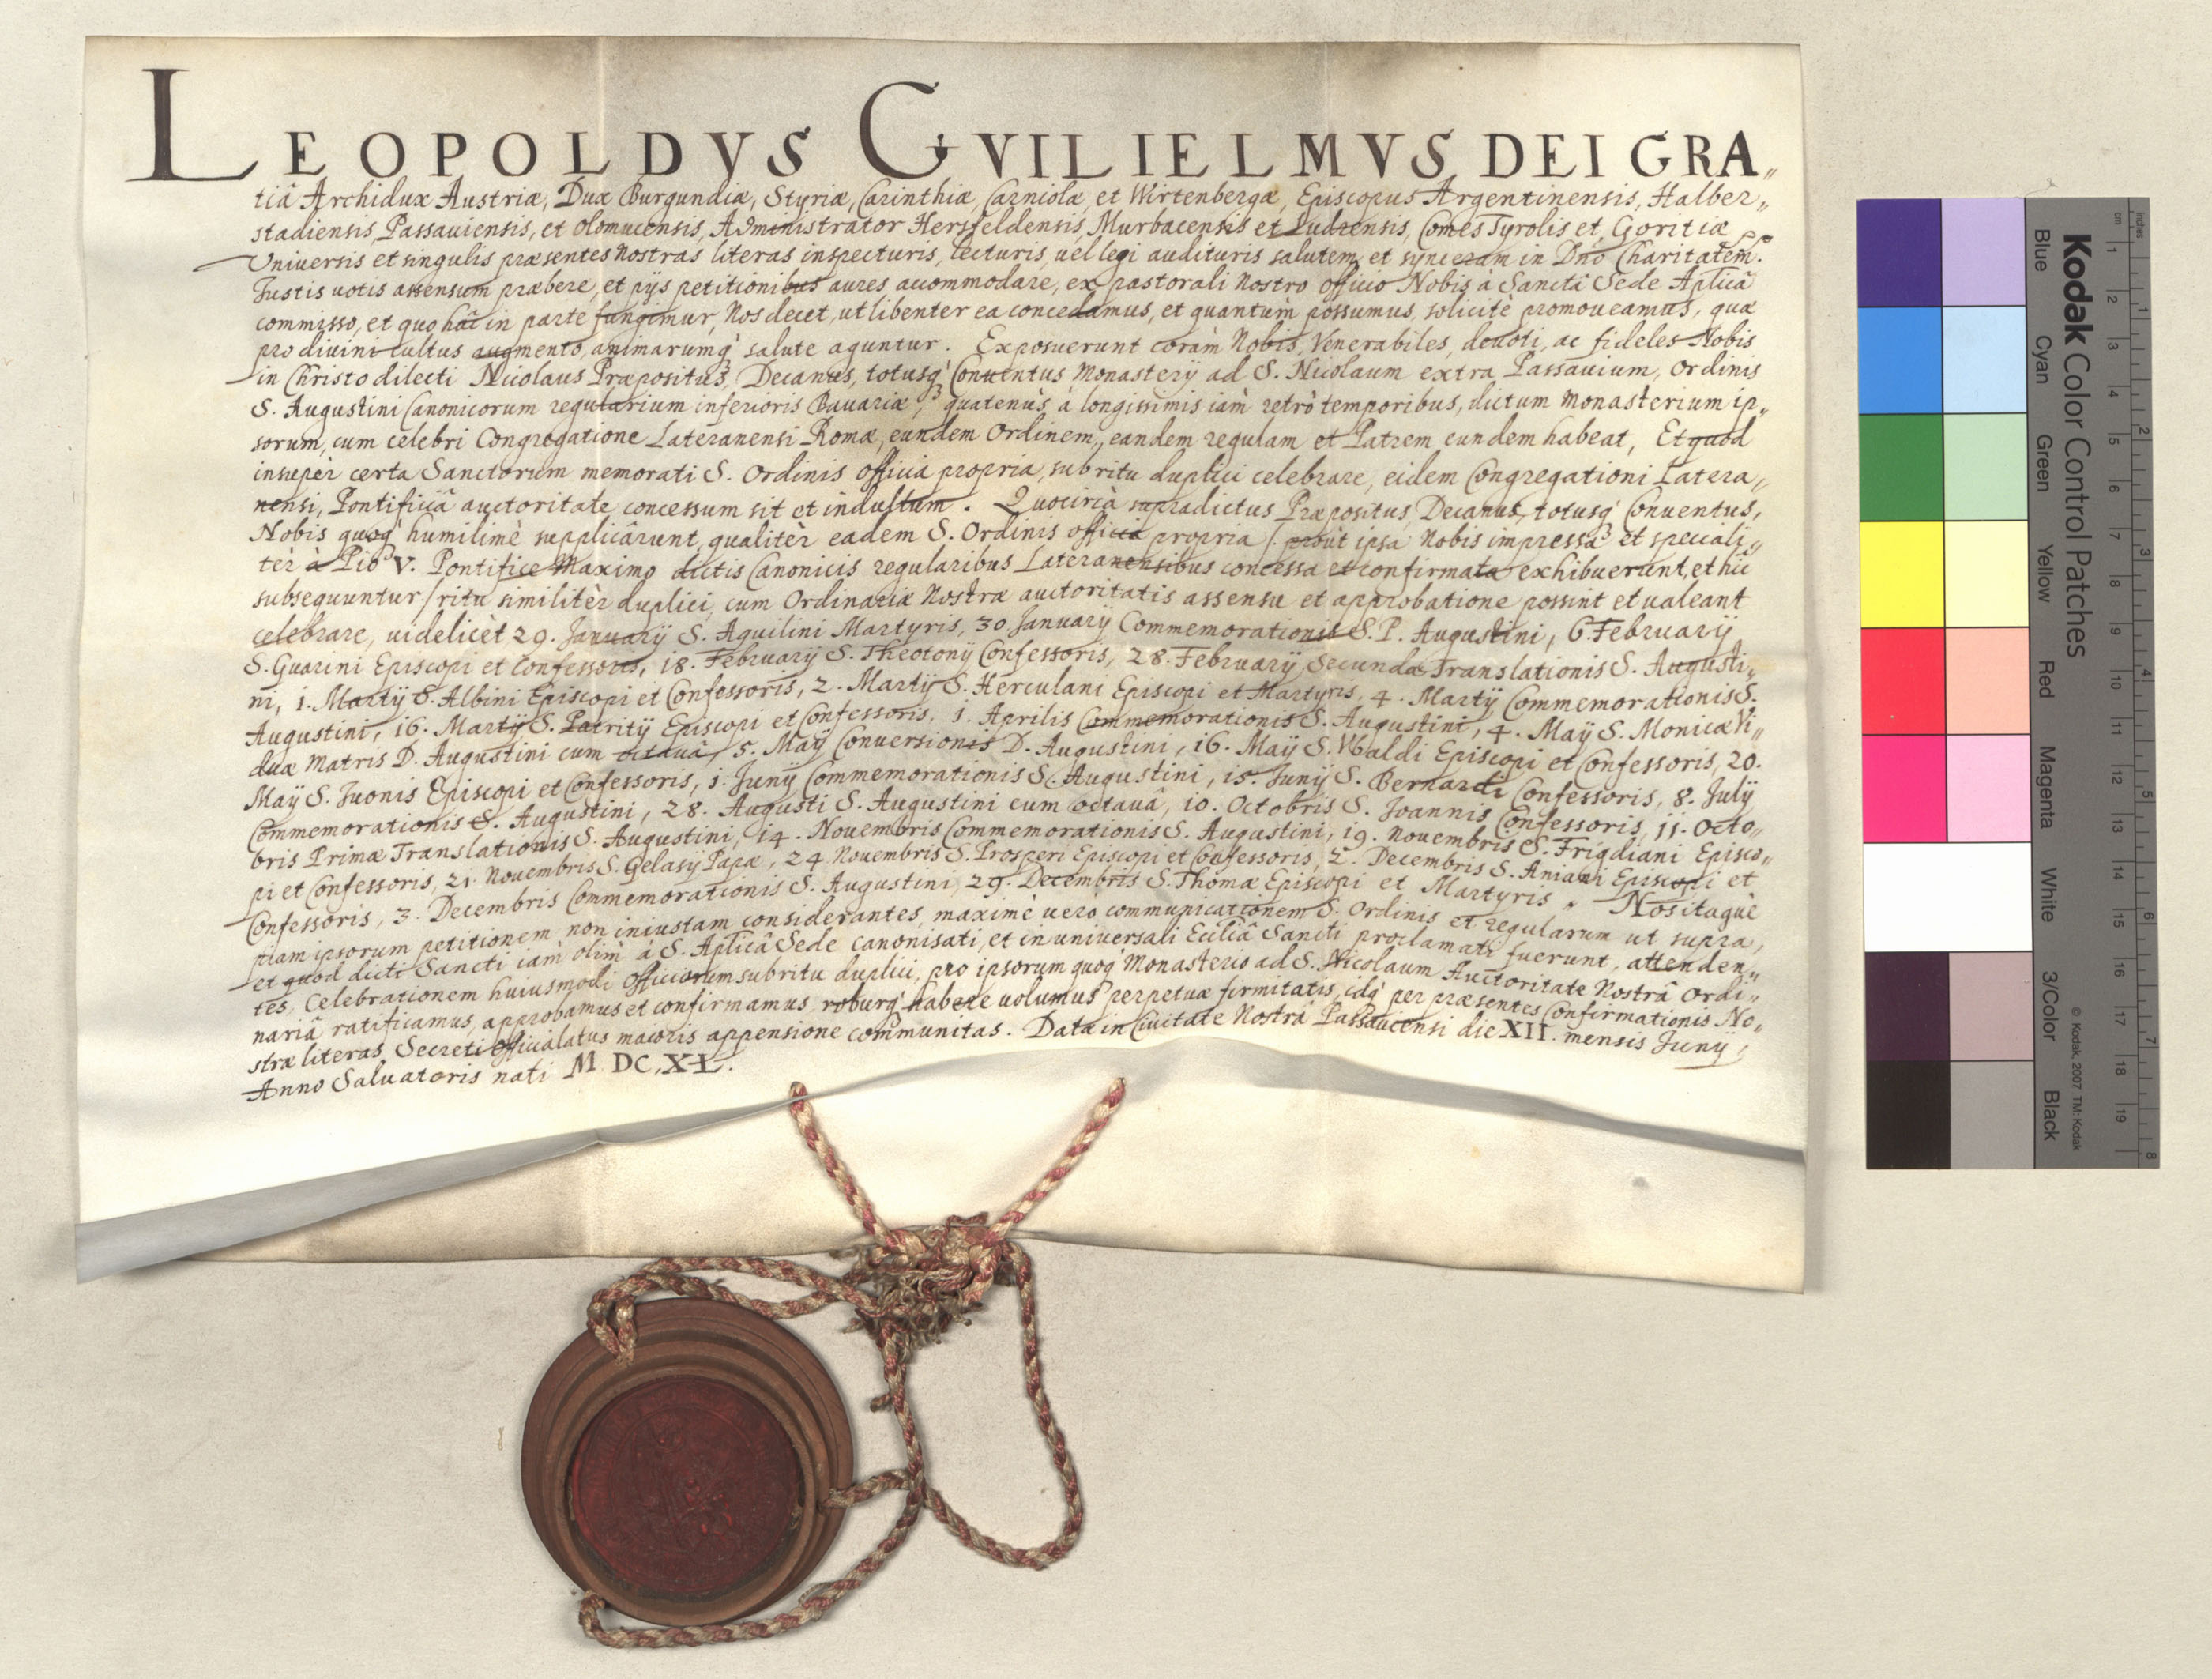 LEOPOLDVS GVILIELMVS DEI GRA„
tiâ Archidux Austriæ, Dux Burgundiæ, Styriæ, Carinthiæ, Carniolæ, et Wirtenbergæ, Episcopus Argentinensis, Halber„
stadiensis, Passauiensis, et Olomucensis, Administrator Hersfeldensis, Murbacensis et Ludrensis, Comes Tyrolis et Goritiæ
Vniuersis et singulis præsentes Nostras literas inspecturis, lecturis, uel legi audituris salutem, et synceram in Dño Charitatem.
Iustis uotis assensum præbere, et pijs petitionibus aures accommodare, ex pastorali Nostro officio Nobis à Sanctâ Sede Aplicâ
commisso, et quo hâc in parte fungimur, Nos decet, ut libenter ea concedamus, et quantùm possumus, solicitè promoueamus, quæ
pro diuini cultus augmento, animarumq; salute aguntur. Exposuerunt coràm Nobis, Venerabiles, deuoti, ac fideles Nobis
in Christo dilecti Nicolaus Præpositus, Decanus, totusq; Conuentus Monasterij ad S. Nicolaum extra Passauium, Ordinis
S. Augustini Canonicorum regularium inferioris Bauariæ, quatenùs à longissimis iam retrò temporibus, dictum Monasterium ip„
sorum, cum celebri Congregatione Lateranensi Romæ, eundem Ordinem, eandem regulam et Patrem eundem habeat, Et quod
insupèr certa Sanctorum memorati S. Ordinis officia propria, sub ritu duplici celebrare, eidem Congregationi Latera„
nensi, Pontificiâ auctoritate concessum sit et indultum. Quocircà supradictus Præpositus, Decanus, totusq; Conuentus,
Nobis quoq; humilimè supplicârunt, qualitèr eadem S. Ordinis officia propria /: proùt ipsa Nobis impressa et speciali„
tèr à Pio V. Pontifice Maximo dictis Canonicis regularibus Lateranensibus concessa et confirmata exhibuerunt, et hîc
subsequuntur :/ ritu similitèr duplici, cum Ordinariæ Nostræ auctoritatis assensu et approbatione possint et ualeant
celebrare, uidelicèt 29. Januarij S. Aquilini Martyris, 30. January Commemorationis S. P. Augustini, 6. Februarij
S. Guarini Episcopi et Confessoris, 18. Februarij S. Theotonij Confessoris, 28. Februarij Secundæ Translationis S. Augusti„
ni, 1. Martij S. Albini Episcopi et Confessoris, 2. Martij S. Herculani Episcopi et Martyris, 4. Martij Commemorationis S.
Augustini, 16. Martij S. Patritij Episcopi et Confessoris, 1. Aprilis Commemorationis S. Augustini, 4. Maij S. Monicæ Vi„
duæ Matris D. Augustini cum octauâ, 5. Maij Conuersionis D. Augustini, 16. Maij S. Vbaldi Episcopi et Confessoris, 20.
Maij S. Juonis Episcopi et Confessoris, 1. Junij Commemorationis S. Augustini, 15. Junij S. Bernardi Confessoris, 8. July
Commemorationis S. Augustini, 28. Augusti S. Augustini cum octauâ, 10. Octobris S. Joannis Confessoris, 11. Octo„
bris Primæ Translationis S. Augustini, 14. Nouembris Commemorationis S. Augustini, 19. Nouembris S. Frigdiani Episco„
pi et Confessoris, 21. Nouembris S. Gelasij Papæ, 24. Nouembris S. Prosperi Episcopi et Confessoris, 2. Decembris S. Aniani Episcopi et
Confessoris, 3. Decembris Commemorationis S. Augustini, 29. Decembris S. Thomæ Episcopi et Martyris. Nos itaquè
piam ipsorum petitionem non iniustam considerantes, maximè uerò communicationem S. Ordinis et regularum ut supra,
et quod dicti Sancti iàm olim à S. Aplicâ Sede canonisati, et in uniuersali Eccliâ Sancti proclamati fuerunt, attenden„
tes, Celebrationem huiusmodi Officiorum sub ritu duplici, pro ipsorum quoq; Monasterio ad S. Nicolaum Auctoritate Nostrâ Ordi„
nariâ ratificamus, approbamus et confirmamus, roburq; habere uolumus perpetuæ firmitatis, idq; per præsentes Confirmationis No„
stræ literas Secreti Officialatus maioris appensione communitas. Data in Ciuitate Nostrâ Passauiensi die XII. mensis Junij,
Anno Saluatoris nati M. DC. XL.
Kodak Color Control Patches
Blue Cyan Green Yellow Red Magenta White 3/Color Black
© Kodak, 2007 TM: Kodak
cm 1 2 3 4 5 6 7 8 9 10 11 12 13 14 15 16 17 18 19
inches 1 2 3 4 5 6 7 8